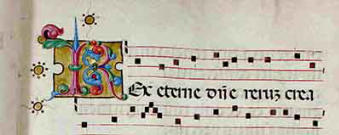 REx eterne dn̄e reruʒ crea